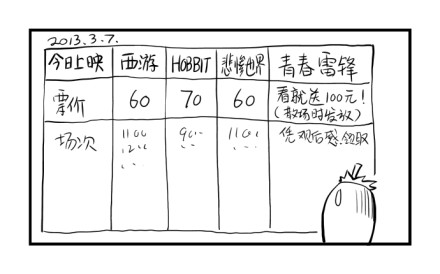 2013.3.7.
今日上映 西游 HOBBIT 悲惨世界 青春雷锋
票价 60 70 60 看就送100元！
（散场时发放）
场次 1100 900 1100 凭观后感领取
1200